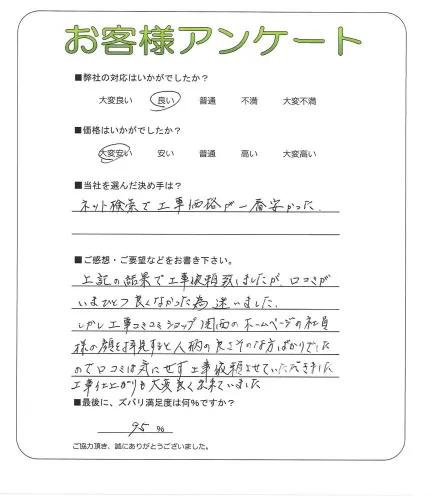 お客様アンケート
■弊社の対応はいかがでしたか？
大変良い 良い 普通 不満 大変不満
■価格はいかがでしたか？
大変安い 安い 普通 高い 大変高い
■当社を選んだ決め手は？
ネット検索で工事価格が一番安かった．
■ご感想・ご要望などをお書き下さい。
上記の結果で工事依頼致しましたが、口コミが
いまひとつ良くなかった為迷いました．
しかし工事コミコミショップ関西のホームページの社員
様の顔を拝見すると人柄の良さそうな方ばかりでした
ので口コミは気にせず工事依頼させていただきました
工事仕上がりも大変良く出来ていました
■最後に、ズバリ満足度は何％ですか？
95 %
ご協力頂き、誠にありがとうございました。